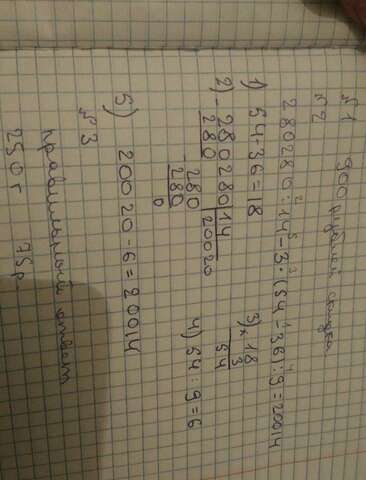 №1 900 рублей скидка
№2
280280:14-3·(54-36):9=20014
1) 54-36=18
2) 280280 14
- 280 20020
280
- 280
0
3) 18
× 3
54
4) 54:9=6
5) 20020-6=20014
№3
правильный ответ
250 г 75 р